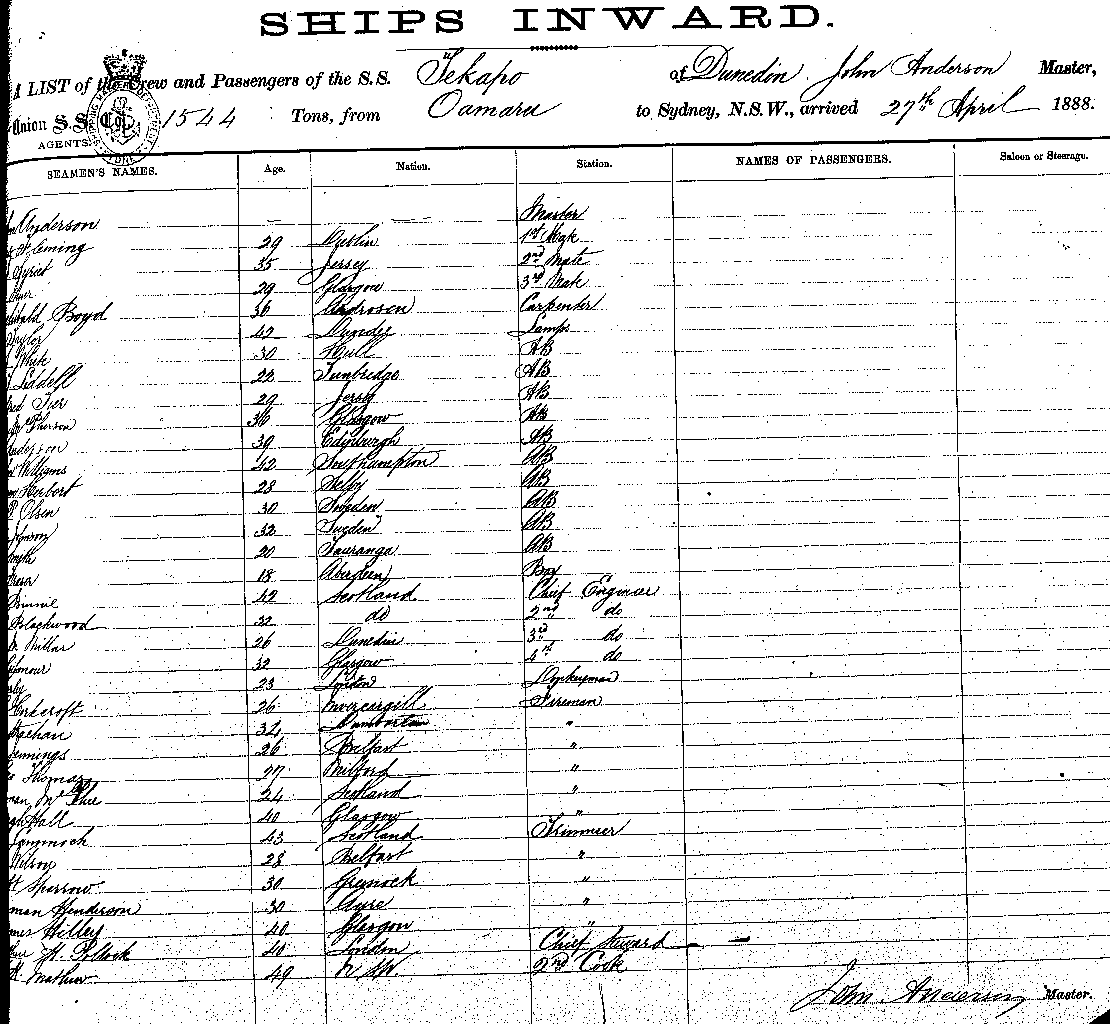 SHIPS INWARD.
A LIST of the Crew and Passengers of the S.S. Tekapo of Dunedin John Anderson Master,
Union S.S. Coy 1544 Tons, from Oamaru to Sydney, N.S.W., arrived 27th April 1888.
AGENTS.
SEAMEN'S NAMES. Age. Nation. Station. NAMES OF PASSENGERS. Saloon or Steerage.
Anderson Master
Fleming 29 Dublin 1st Mate
35 Jersey 2nd Mate
29 Glasgow 3rd Mate
Boyd 36 Ardrosen Carpenter
Taylor 42 Dundee Lamps
White 30 Hull AB
Liddell 22 Tunbridge AB
Tier 29 Jersey AB
McPherson 36 Glasgow AB
Anderson 39 Edinburgh AB
Williams 42 Southampton AB
Herbert 28 Selby AB
P Olsen 30 Sweden AB
Johnson 32 Sweden AB
20 Tauranga AB
18 Aberdeen Boy
42 Scotland Chief Engineer
Blackwood 32 do 2nd do
Millar 26 Dunedin 3rd do
32 Glasgow 4th do
23 London Donkeyman
26 Invercargill Fireman
34 Dumbarton "
Jennings 26 Belfast "
Thomas 27 Milford "
McPhee 24 Scotland "
Hall 40 Glasgow "
43 Scotland Trimmer
Wilson 28 Belfast "
H Sparrow 30 Grenock "
Henderson 30 Ayre "
Hilley 40 Glasgow "
H. Pollock 40 London Chief Steward
Mathew 49 N SW 2nd Cook
John Anderson Master.